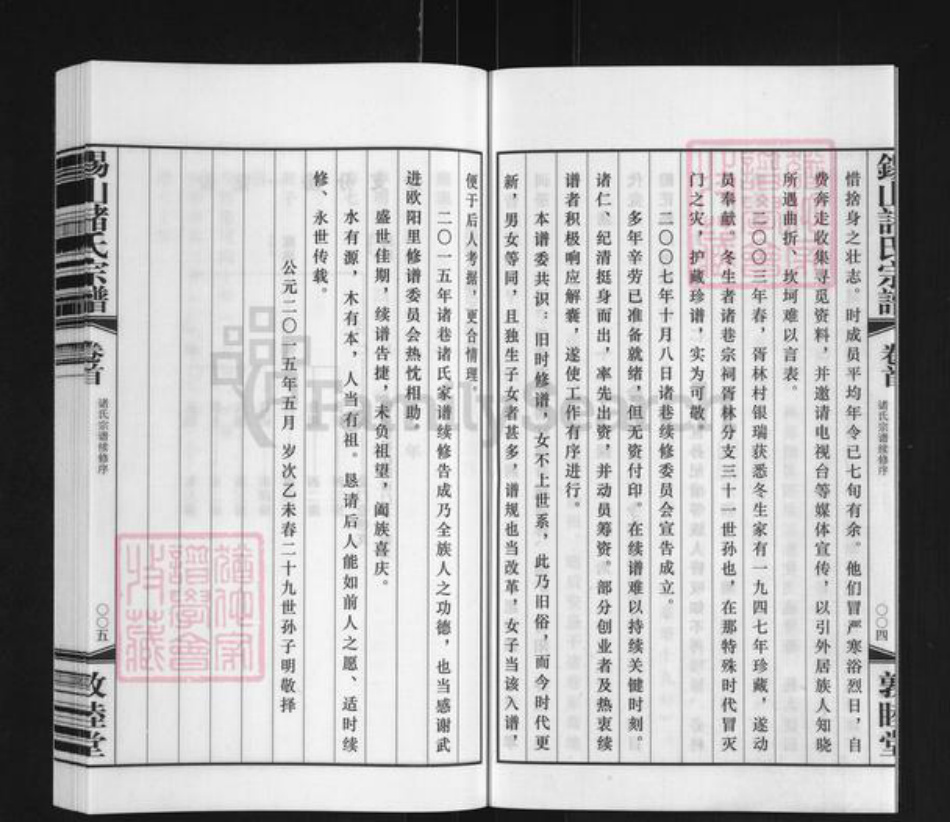 錫山諸氏宗譜
卷首
诸氏宗谱续修序
〇〇四
敦睦堂
惜捨身之壮志。时成员平均年令已七旬有余。他们冒严寒浴烈日，自
费奔走收集寻觅资料，并邀请电视台等媒体宣传，以引外居族人知晓
所遇曲折、坎坷难以言表。
二〇〇三年春，胥林村银瑞获悉冬生家有一九四七年珍藏，遂动
员奉献。冬生者诸巷宗祠胥林分支三十一世孙也，在那特殊时代冒灭
门之灾，护藏珍谱，实为可敬。
二〇〇七年十月八日诸巷续修委员会宣告成立。
多年辛劳已准备就绪，但无资付印。在续谱难以持续关键时刻。
诸仁、纪清挺身而出，率先出资，并动员筹资。部分创业者及热衷续
谱者积极响应解囊，遂使工作有序进行。
本谱委共识：旧时修谱，女不上世系，此乃旧俗，而今时代更
新，男女等同，且独生子女者甚多，谱规也当改革，女子当该入谱，
便于后人考据，更合情理。
二〇一五年诸巷诸氏家谱续修告成乃全族人之功德，也当感谢武
进欧阳里修谱委员会热忱相助
盛世佳期，续谱告捷，未负祖望，阖族喜庆。
水有源，木有本，人当有祖。恳请后人能如前人之愿、适时续
修、永世传载。
公元二〇一五年五月 岁次乙未春二十九世孙子明敬择
錫山諸氏宗譜
卷首
诸氏宗谱续修序
〇〇五
敦睦堂
FamilySearch